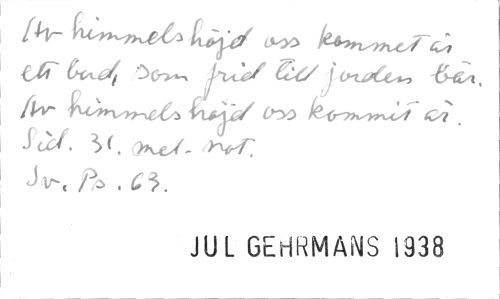 Av himmelshöjd oss kommet är
ett bud, som frid till jorden bär.
Av himmelshöjd oss kommit är.
Sid. 31. mel-not.
Sv. Ps. 63.
JUL GEHRMANS 1938